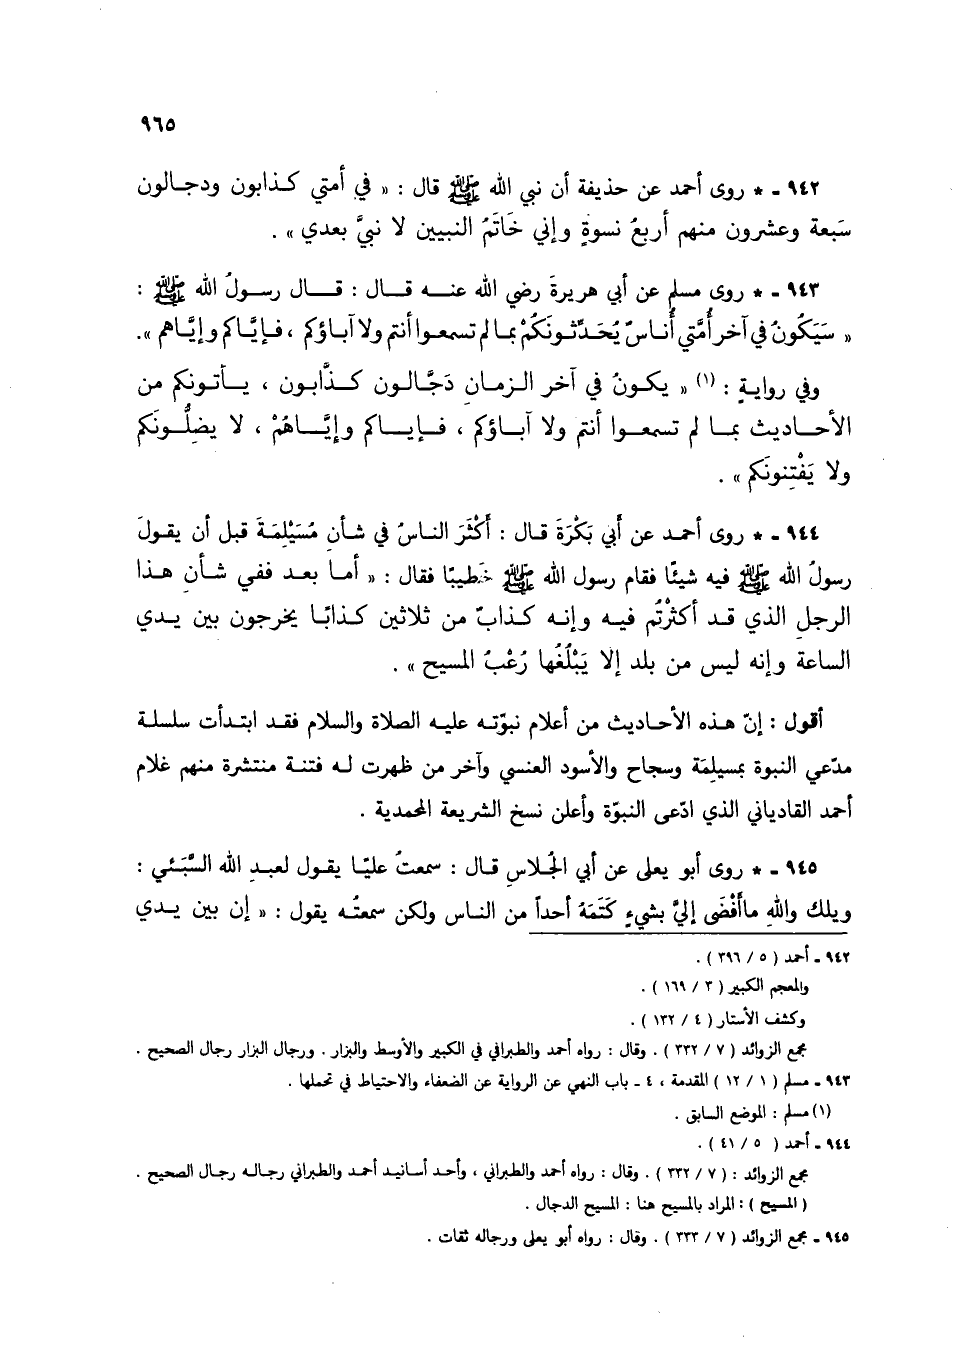 ٩٦٥
٩٤٢ ـ * روى أحمد عن حذيفة أن نبي الله ﷺ قال : « في أمتي كـذابون ودجـالون
سَبعة وعشرون منهم أربعُ نسوةٍ وإني خَاتَمُ النبيين لا نبيَّ بعدي » .
٩٤٣ ـ * روى مسلم عن أبي هريرةَ رضي الله عنـه قـال : قـال رسـولُ الله ﷺ :
« سَيَكُونُ في آخر أُمَّتي أُناسٌ يُحَدِّثـونَكُمْ بمـا لم تسمعـوا أنتم ولا آباؤكم ، فـإيَّاكم وإيَّاهم ».
وفي روايـةٍ : (١) « يكـونُ في آخر الـزمـانِ دَجَّالون كـذَّابون ، يـأتـونكم من
الأحـاديث بمـا لم تسمعـوا أنتم ولا آبـاؤكم ، فـإيـاكم وإيَّـاهُمْ ، لا يضلُّـونَكم
ولا يَفْتِنونَكم » .
٩٤٤ ـ * روى أحمـد عن أبي بَكْرَةَ قـال : أَكْثَرَ النـاسُ في شـأنِ مُسَيْلِمَـةَ قبل أن يقولَ
رسولُ الله ﷺ فيه شيئًا فقام رسول الله ﷺ خطيبًا فقال : « أمـا بعـد ففي شـأنِ هـذا
الرجلِ الذي قـد أكثرْتُم فيـه وإنـه كـذابٌ من ثلاثين كـذابًـا يخرجون بين يـدي
الساعة وإنه ليس من بلد إلا يَبْلُغُها رُعْبُ المسيح » .
أقول : إنّ هـذه الأحـاديث من أعلام نبوّتـه عليـه الصلاة والسلام فقـد ابتـدأت سلسلـة
مدّعي النبوة بمسيلِمَة وسجاح والأسود العنسي وآخر من ظهرت لـه فتنـة منتشرة منهم غلام
أحمد القادياني الذي ادّعى النبوّة وأعلن نسخ الشريعة المحمدية .
٩٤٥ ـ * روى أبو يعلى عن أبي الجُلاسِ قـال : سمعتُ عليًـا يقـول لعبـدِ الله السَّبَئي :
ويلك واللهِ ماأَفْضَى إليَّ بشيءٍ كَتَمَهُ أحداً من النـاس ولكن سمعتُـه يقول : « إن بين يـدي
٩٤٢ ـ أحمد ( ٥ / ٣٩٦ ) .
والمعجم الكبير ( ٣ / ١٦٩ ) .
وكشف الأستار ( ٤ / ١٣٢ ) .
مجمع الزوائد ( ٧ / ٣٣٢ ) . وقال : رواه أحمد والطبراني في الكبير والأوسط والبزار . ورجال البزار رجال الصحيح .
٩٤٣ ـ مسلم ( ١ / ١٢ ) المقدمة ، ٤ ـ باب النهي عن الرواية عن الضعفاء والاحتياط في تحملها .
(١) مسلم : الموضع السابق .
٩٤٤ ـ أحمد ( ٥ / ٤١ ) .
مجمع الزوائد : ( ٧ / ٣٣٢ ) . وقال : رواه أحمد والطبراني ، وأحـد أسـانيـد أحمـد والطبراني رجـالـه رجـال الصحيح .
( المسيح ) : المراد بالمسيح هنا : المسيح الدجال .
٩٤٥ ـ مجمع الزوائد ( ٧ / ٣٣٣ ) . وقال : رواه أبو يعلى ورجاله ثقات .